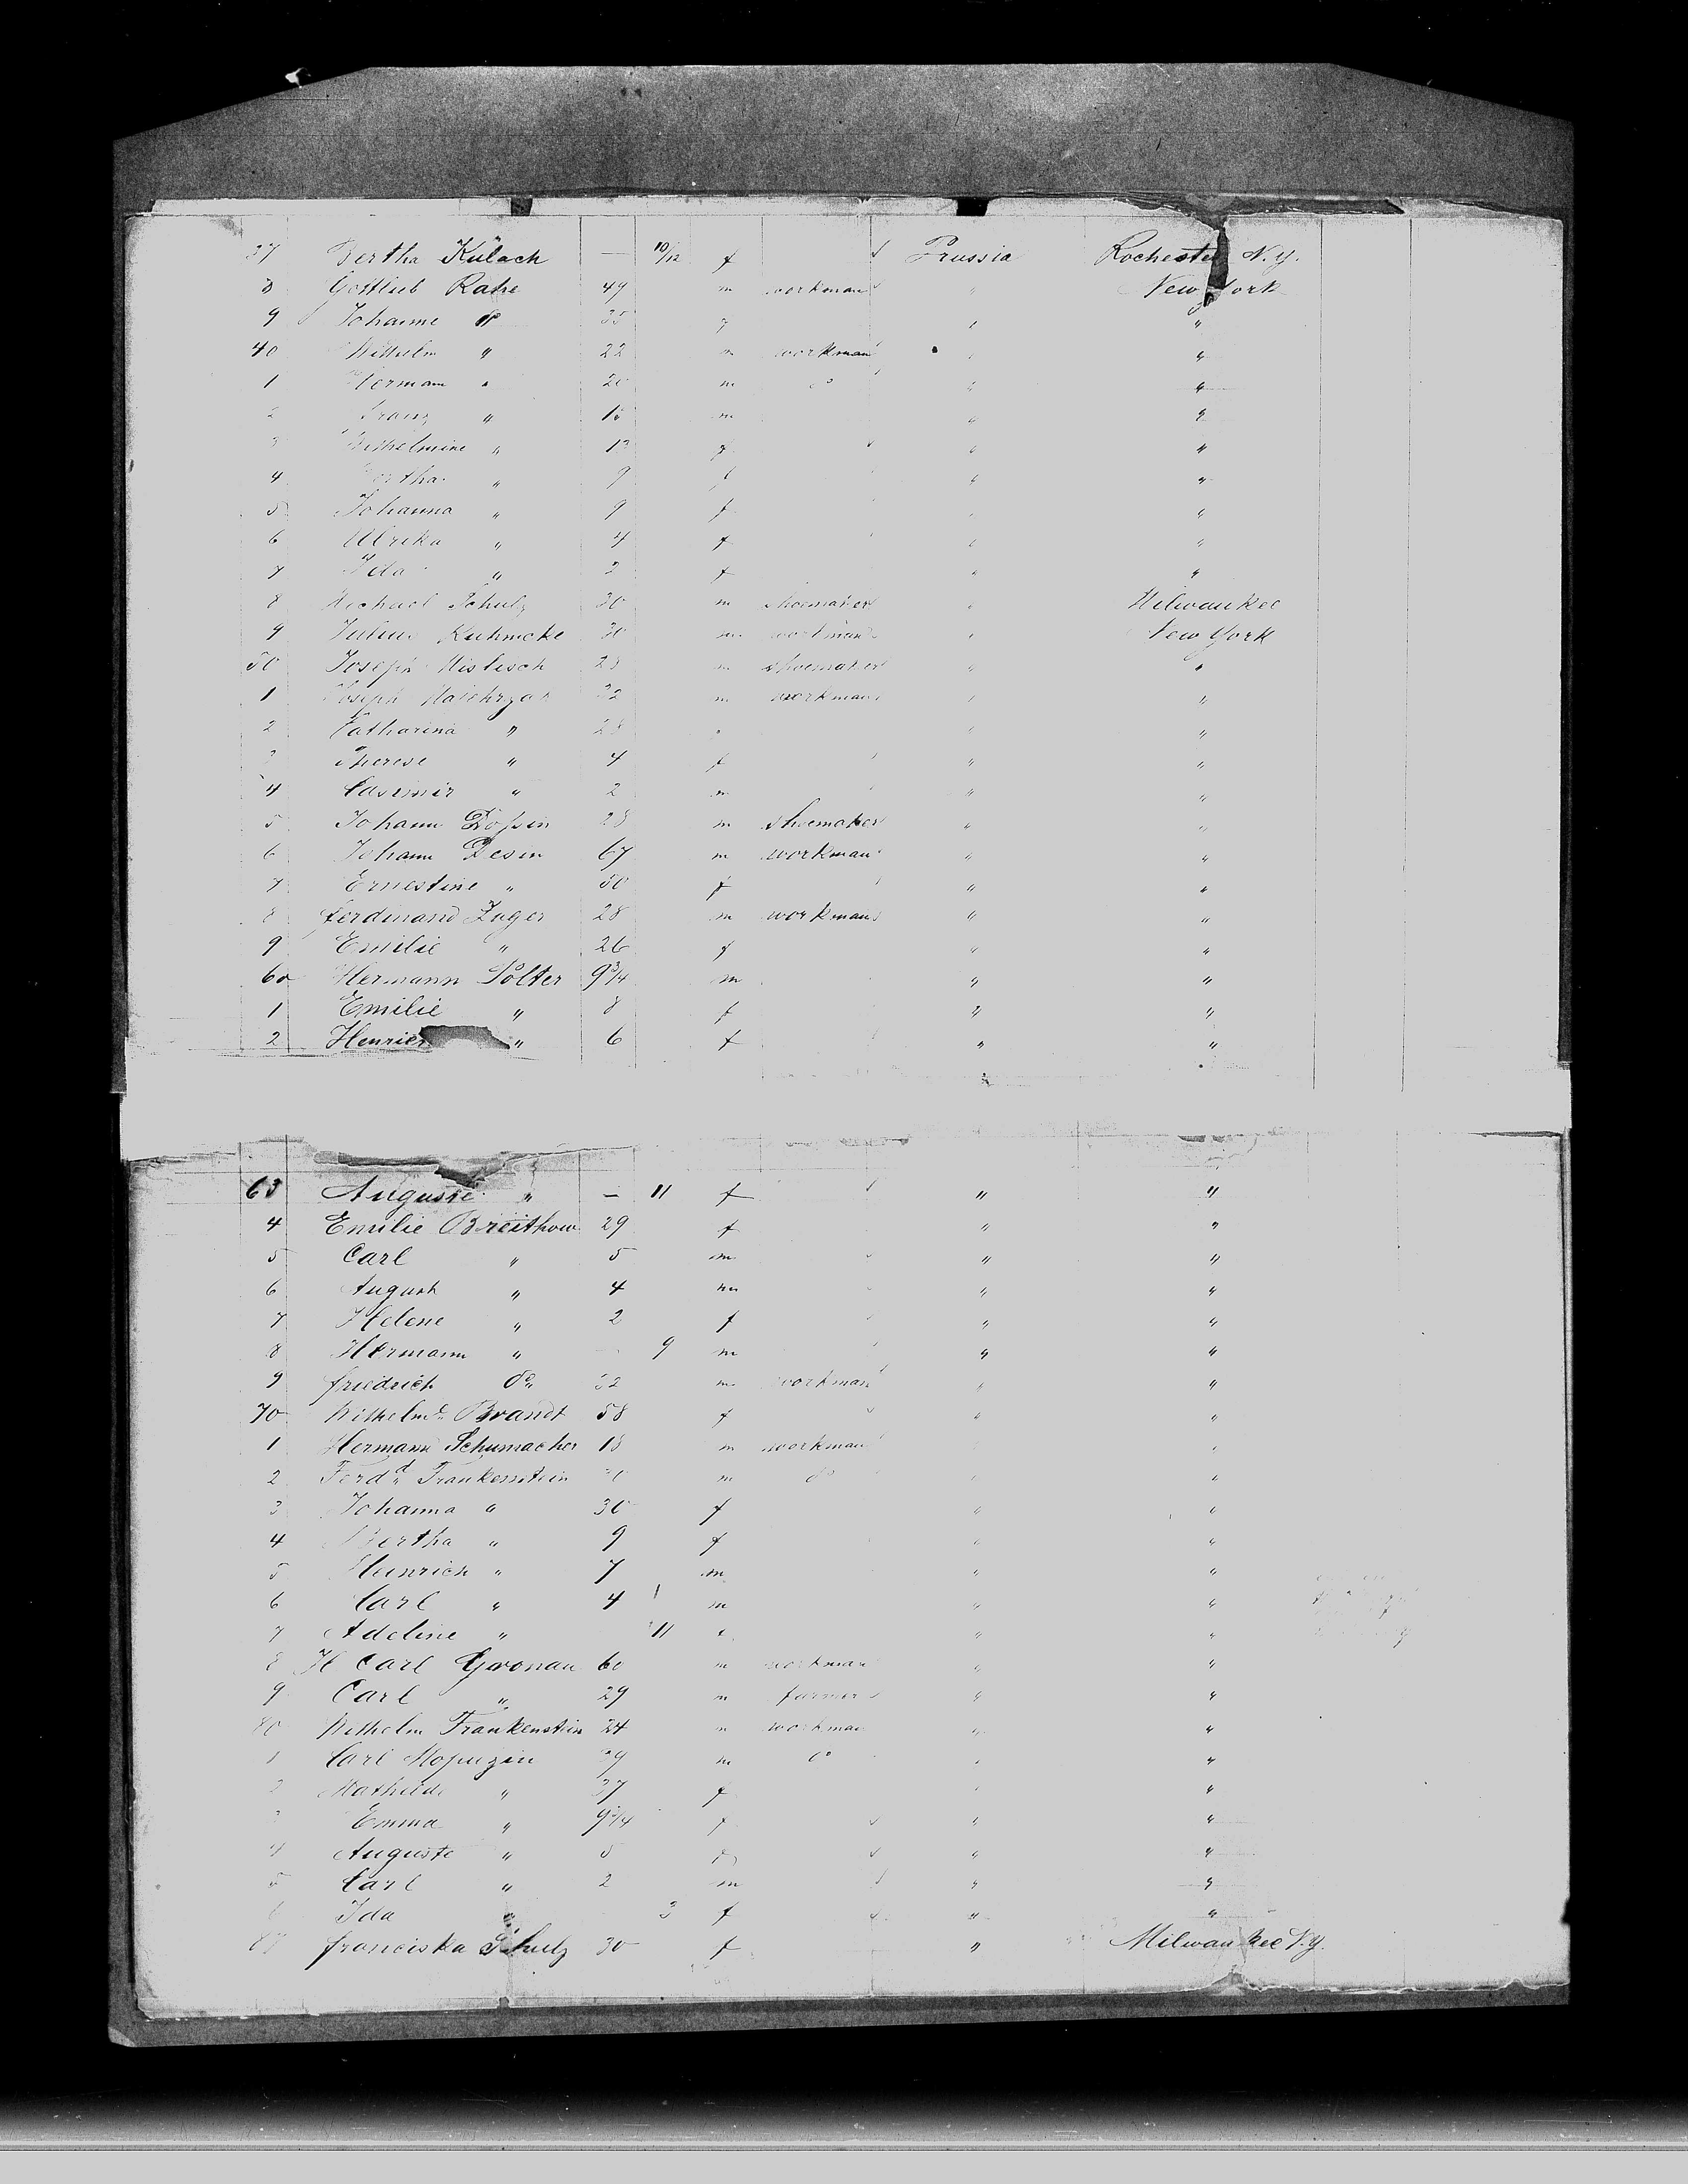 37 Bertha Kulach — 10/12 f Prussia Rochester N.Y.
8 Gottlieb Rahe 49 m workman " New York
9 Johanne do 35 f " "
40 Wilhelm " 22 m workman " "
1 Hermann " 20 m do " "
2 Franz " m " "
3 Wilhelmine " 13 f " "
4 Bertha " 9 f " "
5 Johanna " 9 f " "
6 Ulrika " 4 f " "
7 Ida " 2 f " "
8 Michael Schulz 30 m shoemaker " Milwaukee
9 Julius Kuhmcke 30 m workman " New York
50 Joseph Mislisch 28 m shoemaker " "
1 Joseph 32 m workman " "
2 Catharina " 28 " "
3 Therese " 4 f " "
4 Casimir " 2 m " "
5 Johann 28 m shoemaker " "
6 Johann Desin 67 m workman " "
7 Ernestine " 50 f " "
8 ferdinand Zuger 28 m workman " "
9 Emilie " 26 f " "
60 Hermann Polter 9 3/4 m " "
1 Emilie " 8 f " "
2 Henrie " 6 f " "
63 Auguste " — 11 f " "
4 Emilie Breithow 29 f " "
5 Carl " 5 m " "
6 August " 4 m " "
7 Helene " 2 f " "
8 Hermann " — 9 m " "
9 friedrich do 32 m workman " "
70 Wilhelme Brandt 58 f " "
1 Hermann Schumacher 18 m workman " "
2 Ferdd Frankenstein m do " "
3 Johanna " 36 f " "
4 Bertha " 9 f " "
5 Heinrich " 7 m " "
6 Carl " 4 m " "
7 Adeline " 11 " "
8 H Carl Gronau 60 m workman " "
9 Carl " 29 m farmer " "
80 Wilhelm Frankenstein 24 m workman " "
1 Carl 39 m do " "
2 Mathilde " 37 f " "
3 Emma " 9 3/4 f " "
4 Auguste " 5 f " "
5 Carl " 2 m " "
6 Ida " 3 f " "
87 franciska Schulz 30 f " Milwaukee N.Y.